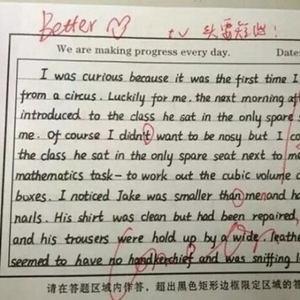 Better
We are making progress every day. Date:
I was curious because it was the first time I
from a circus. Luckily for me, the next morning af
introduced to the class he sat in the only spare s
me. Of course I didn't want to be nosy but I
the class he sat in the only spare seat next to m
mathematics task- to work out the cubic volume o
boxes. I noticed Jake was smaller than me and ha
nails. His shirt was clean but had been repaired,
and his trousers were hold up by a wide leathe
seemed to have no handkerchief and was sniffing l
请在答题区域内作答，超出黑色矩形边框限定区域的答